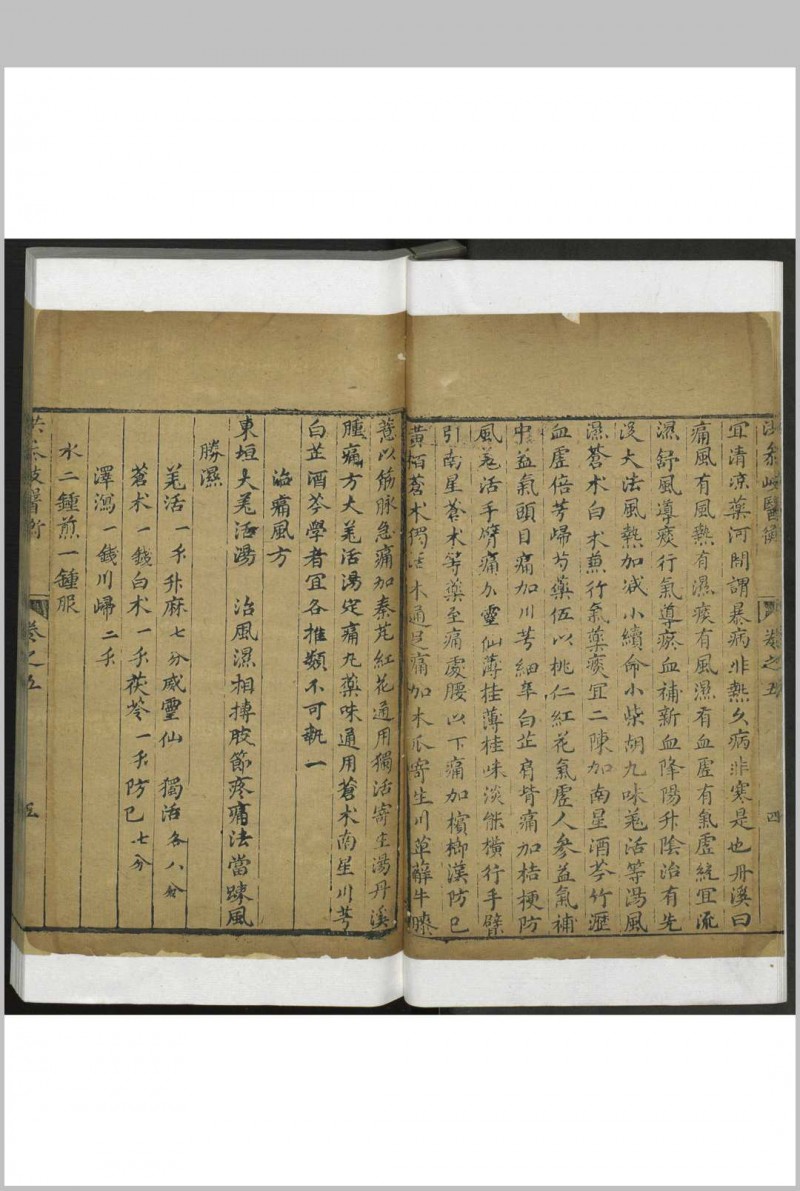 宜清凉藥河間謂暴病非熱久病非寒是也丹溪曰
痛風有風熱有濕痰有風濕有血虛有氣虛縂宜流
濕舒風導痰行氣導瘀血補新血降陽升陰治有先
大法風熱加减小續命小柴胡九味羌活等湯風
濕蒼术白术煎行氣藥痰宜二陳加南星酒芩竹瀝
血虛倍芎歸芍藥伍以桃仁紅花氣虛人參益氣補
中益氣頭目痛加川芎細辛白芷肩背痛加桔梗防
風羌活手臂痛加靈仙薄桂薄桂味淡能横行手臂
引南星蒼术等藥至痛處腰以下痛加檳榔漢防已
黄栢蒼术獨活木通足痛加木瓜寄生川萆薢牛膝
薏以筋脉急痛加秦艽紅花通用獨活寄生湯丹溪
腫痛方大羌活湯定痛丸藥味通用蒼术南星川芎
白芷酒芩學者宜各推類不可執一
治痛風方
東垣大羌活湯 治風濕相摶肢節疼痛法當踈風
勝濕
羌活一錢升麻七分威靈仙 獨活各八分
蒼术一錢白术一錢茯苓一錢防已七分
澤瀉一錢川歸二錢
水二鍾煎一鍾服
卷之五
四
卷之五
五